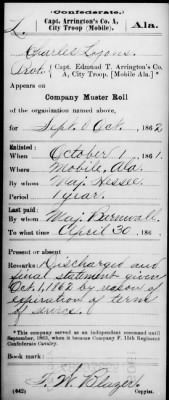 (Confederate.)
L. Capt. Arrington's Co. A, Ala.
City Troop (Mobile).
Charles
Capt. Edmund T. Arrington's Co.
A, City Troop. [Mobile Ala.]*
Appears on
Company Muster Roll
of the organization named above,
for Sept. & Oct., 1862
Enlisted:
When October 1, 1861.
Where Mobile, Ala.
By whom Maj. Hessee.
Period 1 year.
Last paid:
By whom Maj. Barnwall.
To what time April 30, 186
Present or absent
Remarks: Discharged and
final statement given
Oct. 1, 1862 by reason of
expiration of term
of service.
*This company served as an independent command until
September, 1863, when it became Company F, 15th Regiment
Confederate Cavalry.
Book mark:
(642) Copyist.